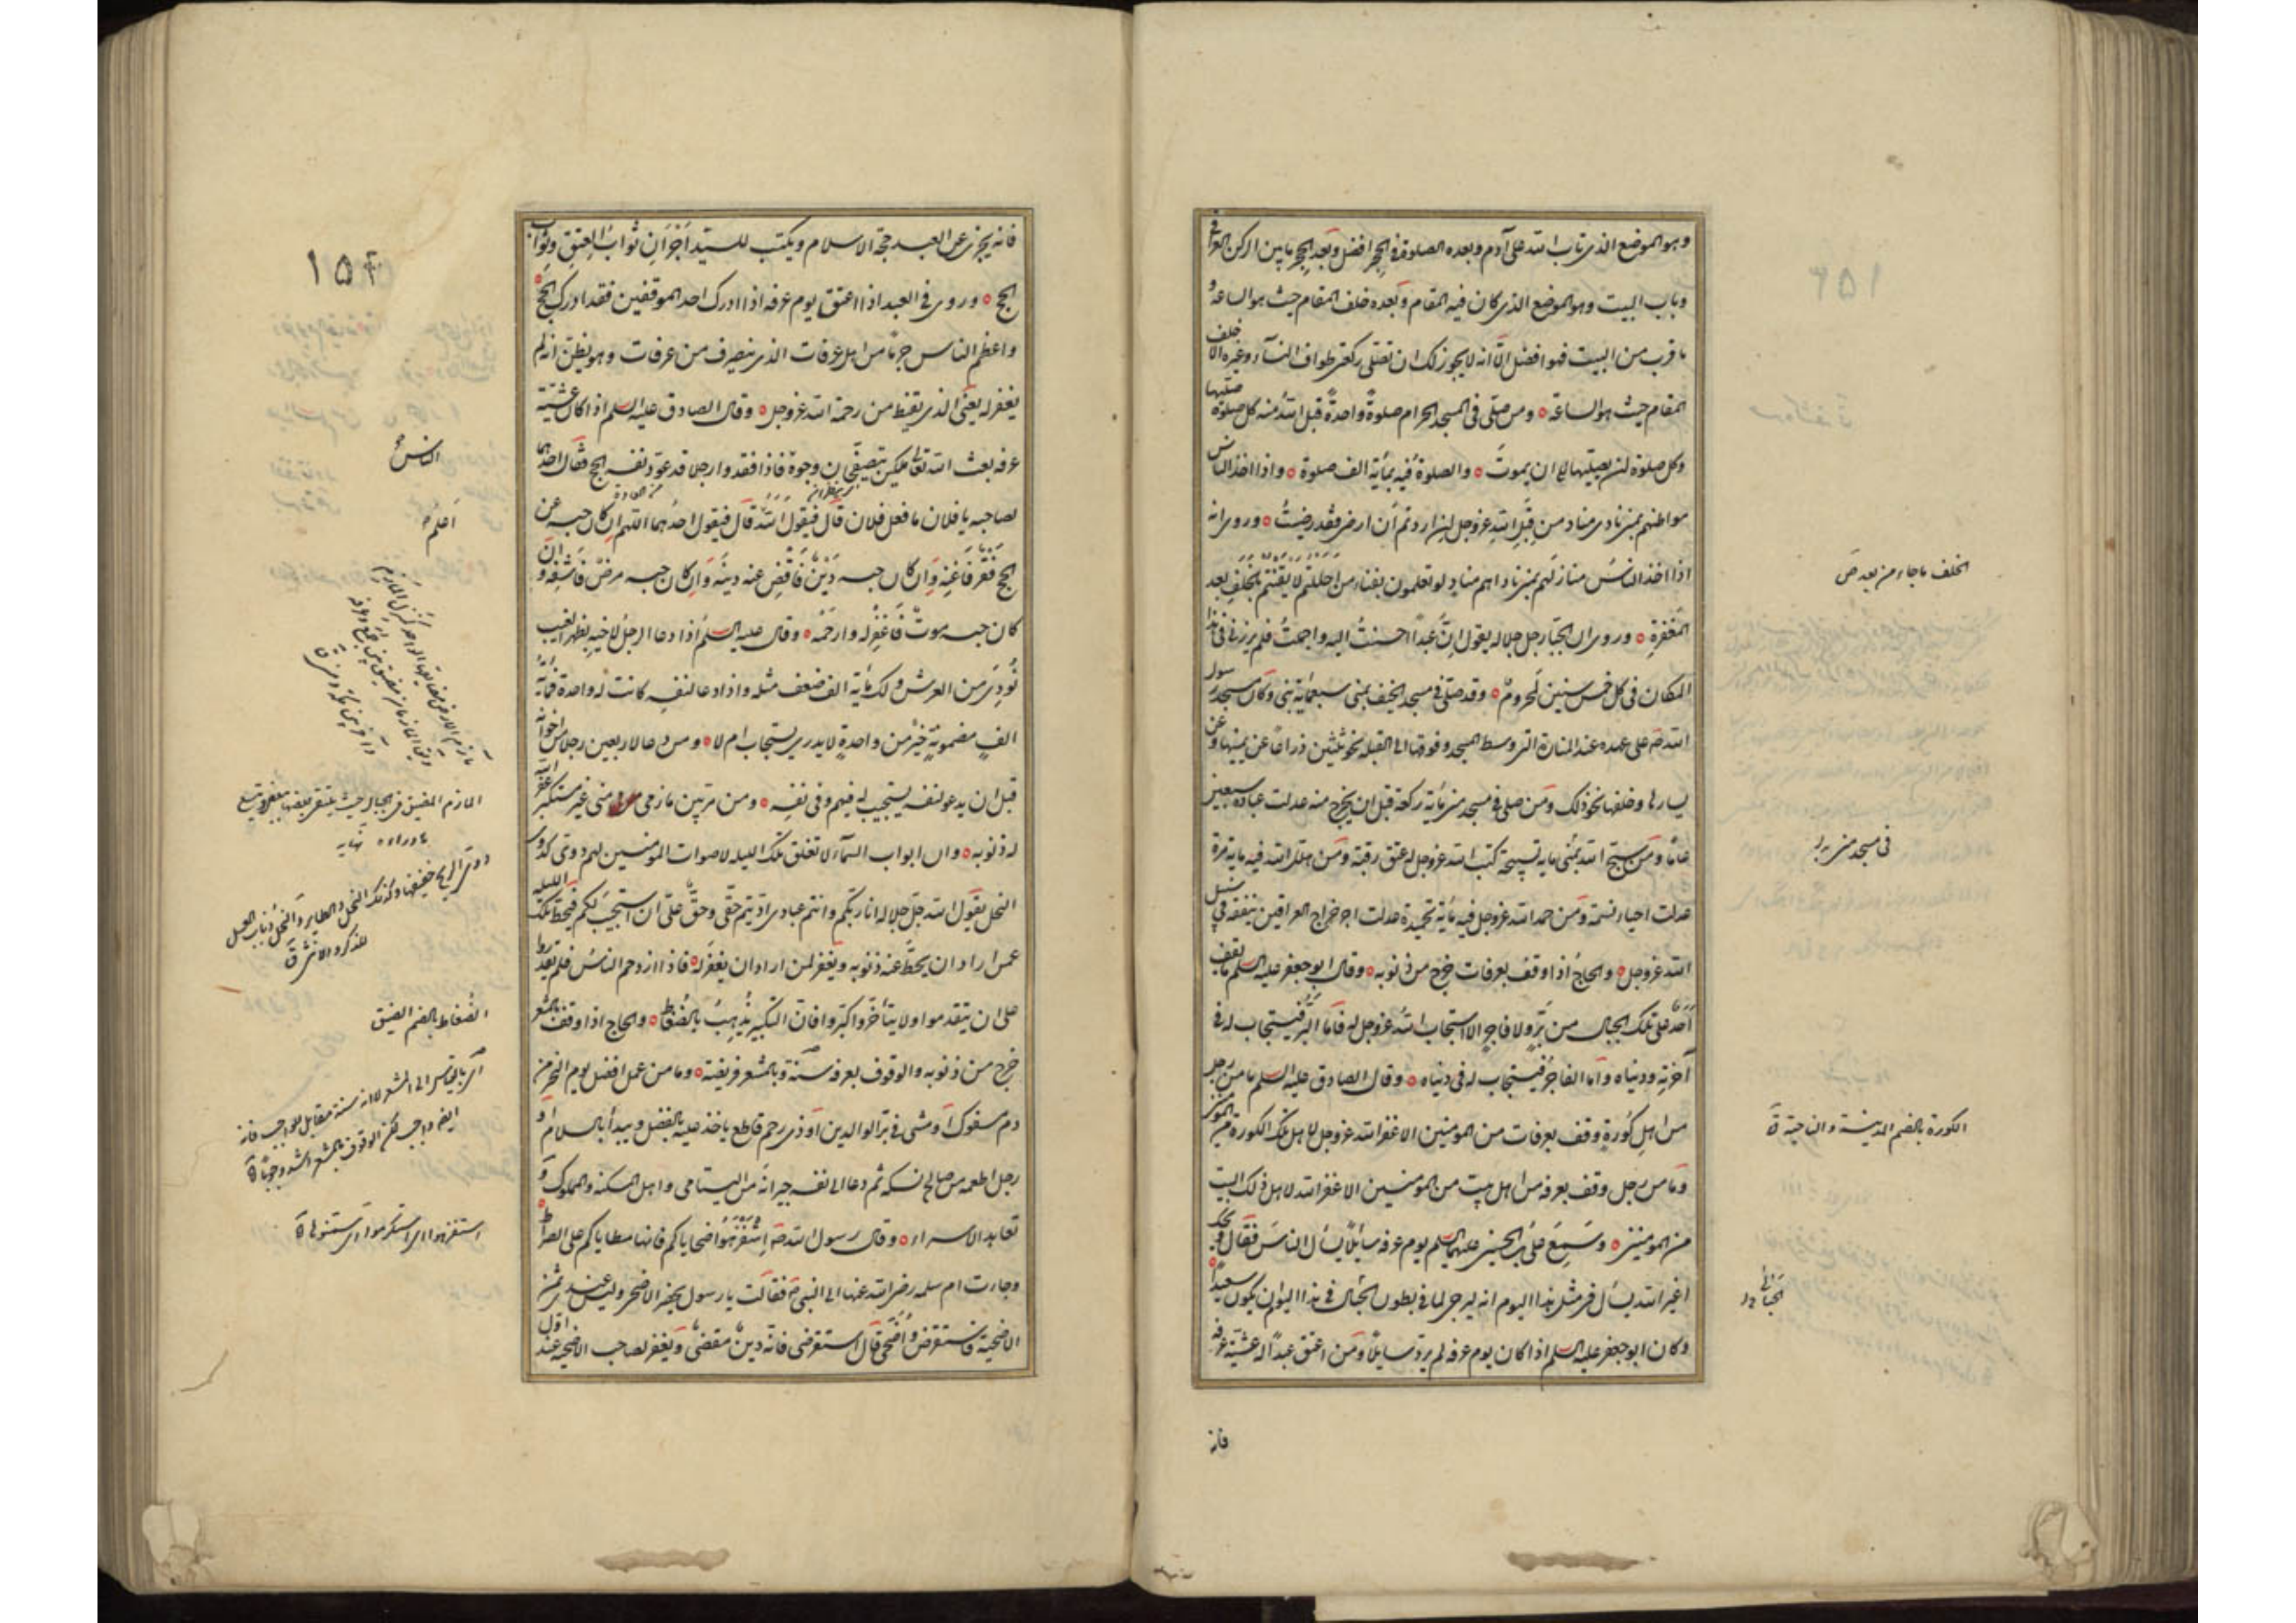 وهو الموضع الذي تاب الله على آدم وبعده الصلوة في الحجر افضل وبعد الحجر ما بين الركن العراقي
وباب البيت وهو الموضع الذي كان فيه المقام وبعده خلف المقام حيث هو الساعة و
ما قرب من البيت فهو افضل الا انه لا يجوز لك ان تصلى ركعتي طواف النسآء وغيره الا خلف
المقام حيث هو الساعة ومن صلى في المسجد الحرام صلوةً واحدةً قبل الله منه كل صلوة صليها
وكل صلوة لن يصليها الى ان يموت والصلوة فيه بمأية الف صلوة واذا اخذ الناس
مواطنهم بمنى نادى مناد من قبل الله عزوجل ان اردتم أن ارضى فقد رضيتُ وروى انه
اذا اخذ الناسُ منازلهم بمنى ناداهم مناد لو تعلمون بفناء من احللتم لأيقنتم بالخلف بعد
المغفرة وروى ان الجبار جل جلاله يقول ان عبداً احسنتُ اليه واجملتُ فلم يزرني في هذا
المكان في كل خمس سنين لمحروم وقد صلى في مسجد الخيف بمنى سبعمأية نبي وكان مسجد رسول
الله ص على عهده عند المنارة التي وسط المسجد وفوقها الى القبلة نحو ثلثين ذراعاً عن يمينها وعن
يسارها وخلفها نحو ذلك ومن صلى في مسجد منى مأية ركعة قبل ان يخرج منه عدلت عبادة سبعين
عامًا ومن سبح الله بمنى مأية تسبيحة كتب الله عزوجل له عتق رقبة ومن هلل الله فيه مأية مرة
عدلت احياء نسمة ومن حمد الله عزوجل فيه مأية تحميدة عدلت اجر خراج العراقين ينفقه في سبيل
الله عزوجل والحاجُ اذا وقف بعرفات خرج من ذنوبه وقال ابو جعفر عليه السلم ما يقف
أحد على تلك الجبال من بَرٍّ ولا فاجرٍ الا استجاب الله عزوجل له فاما البر فيستجاب له في
آخرته ودنياه واما الفاجر فيستجاب له في دنياه وقال الصادق عليه السلم ما من رجل
من اهل كُورةٍ وقف بعرفات من المومنين الا غفر الله عزوجل لاهل تلك الكورة من المومنين
وما من رجل وقف بعرفة من اهل بيت من المومنين الا غفر الله لاهل ذلك البيت
من المومنين وسمع على بن الحسين عليهما السلم يوم عرفة سايلاً يسأل الناس فقال ويحك
اغير الله تسأل في مثل هذا اليوم انه ليرجى لما في بطون الجبال في هذا اليوم ان يكون سعيداً
وكان ابو جعفر عليه السلم اذا كان يوم عرفة لم يرد سايلاً ومن اعتق عبداً له عشية عرفة
فانه
الخلف ما جاء من بعد ص
في مسجد منى
الكورة بالضم المدينة والناحية ق
الحبالى
١٥٤
فانه يجزى عن العبد حجة الاسلام ويكتب للسيد اجران ثواب العتق وثواب
الحج وروى في العبد اذا اعتق يوم عرفة اذا ادرك احد الموقفين فقد ادرك الحج
واعظم الناس جرمًا من اهل عرفات الذي ينصرف من عرفات وهو يظن انه لم
يغفر له يعنى الذي يقنط من رحمة الله عزوجل وقال الصادق عليه السلم اذا كان عشية
عرفة بعث الله تعالى ملكين يتصفحان وجوه فاذا فقدوا رجلا قد عود نفسه الحج فقال احدهما
لصاحبه يا فلان ما فعل فلان قال فيقول الله قال فيقول احدهما اللهم ان كان حبسه عن
الحج فَقْر فَاغنه وان كان حبسه دَين فاقض عنه دينه وان كان حبسه مرض فاشفه وان
كان حبسه موت فاغفر له وارحمه وقال عليه السلم اذا دعا الرجل لاخيه بظهر الغيب
نُودِيَ من العرش ولك مأية الف ضعف مثله واذا دعا لنفسه كانت له واحدة فمأية
الفٍ مضمونةٍ خير من واحدةٍ لا يدرى يستجاب ام لا ومن دعا لاربعين رجلا من اخوانه
قبل ان يدعو لنفسه يستجيب له فيهم وفي نفسه ومن مر بين مازمى منى غير مستكبر غفر الله
له ذنوبه وان ابواب السمآء لا تغلق تلك الليلة لاصوات المومنين لهم دوى كدوى
النحل يقول الله جل جلاله انا ربكم وانتم عبادى اديتم حقى وحق على ان استجيب لكم فيحط تلك الليلة
عمن اراد ان يحط عنه ذنوبه ويغفر لمن اراد ان يغفر له فاذا ازدحم الناس فلم يقدروا
على ان يتقدموا ولا يتأخروا كبروا فان التكبير يذهب بالضُغاط والحاج اذا وقف بالمشعر
خرج من ذنوبه والوقوف بعرفة سنة وبالمشعر فريضة وما من عمل افضل يوم النحر من
دم مسفوك او مشى في بر الوالدين او ذى رحم قاطع ياخذ عليه بالفضل ويبدأ بالسلام او
رجل اطعم من صالح نسكه ثم دعا الى نفسه جيرانه من اليتامى واهل المسكنة والمملوك و
تعاهد الاسراء وقال رسول الله ص استفرهوا ضحاياكم فانها مطاياكم على الصراط
وجاءت ام سلمة رضى الله عنها الى النبي ص فقالت يا رسول يحضر الاضحى وليس عندى ثمن
الاضحية فاستقرض وأضحى قال استقرضى فانه دين مقضى ويغفر لصاحب الاضحية عند اول
الناس
أعلم
المازم المضيق في الجبال حيث يلتقى بعضها ببعض ويتسع
ما وراءه نهاية
دوى الريح حفيفها وكذلك النحل والطاير والنحل ذباب العسل
للذكر والانثى ق
الضُغاط بالضم الضيق
استفرهوا اى استكرموا